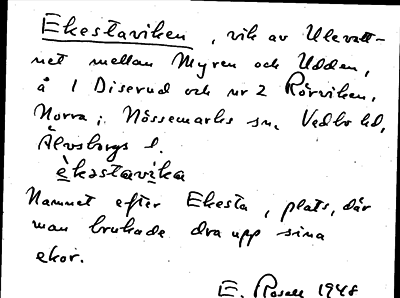 Ekestaviken, vik av Ulevatt-
net mellan Myren och Udden,
å 1 Diserud och nr 2 Rörviken,
Norra; Nössemarks sn. Vedbo hd,
Älvsborgs l.
èkəstavika
Namnet efter Ekesta, plats, där
man brukade dra upp sina
ekor.
E. Rosell 1948